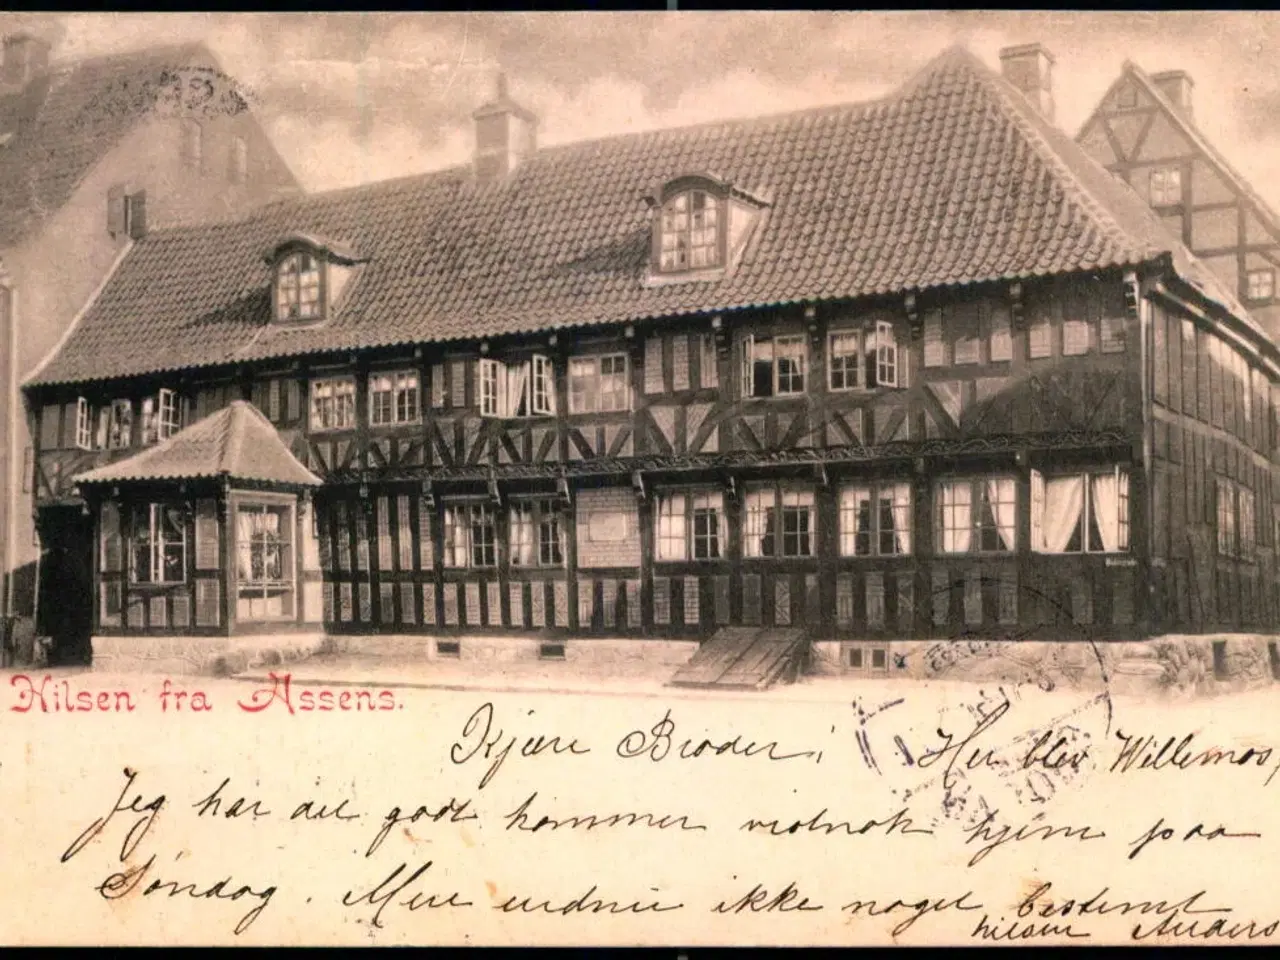 Hilsen fra Assens.
Kjære Broder! Her blev Willemos,
Jeg har det godt kommer vistnok hjem paa
Søndag. Men endnu ikke noget bestemt
hilsen Anders